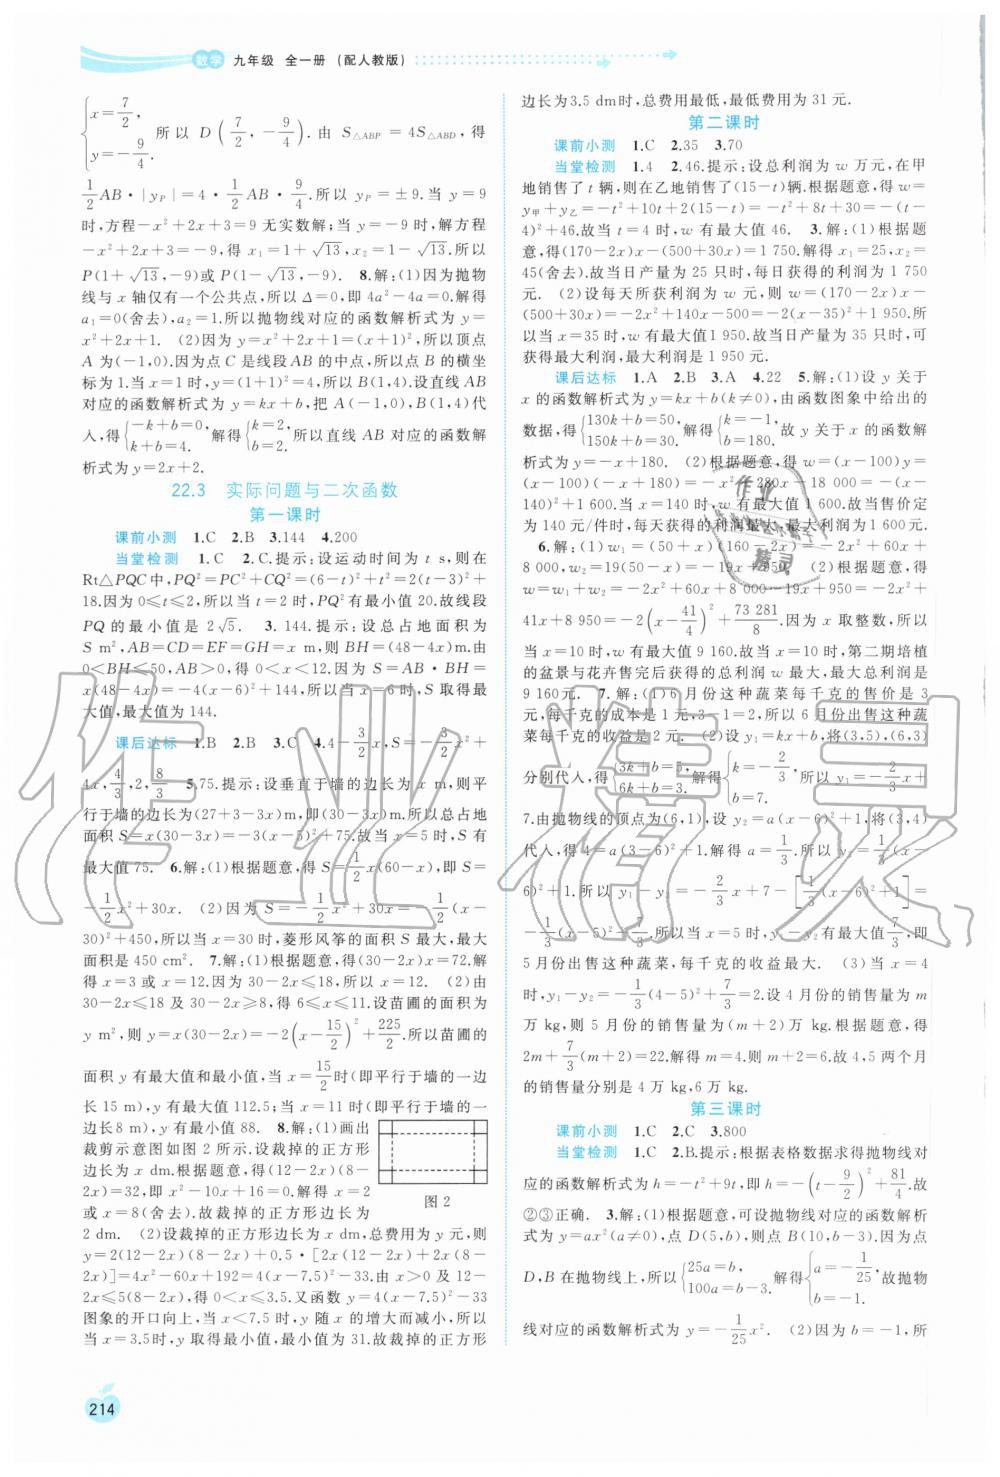 数学 九年级 全一册 (配人教版)
{x=7/2, y=-9/4. 所以 D(7/2,-9/4).由 S△ABP=4S△ABD,得
1/2AB·|yP|=4·1/2AB·9/4.所以 yP=±9.当 y=9
时,方程-x²+2x+3=9 无实数解;当 y=-9 时,解方程
-x²+2x+3=-9,得 x₁=1+√13,x₂=1-√13.所以
P(1+√13,-9)或 P(1-√13,-9) 8.解:(1)因为抛物
线与 x 轴仅有一个公共点,所以 Δ=0,即 4a²-4a=0.解得
a₁=0(舍去),a₂=1.所以抛物线对应的函数解析式为 y=
x²+2x+1. (2)因为 y=x²+2x+1=(x+1)²,所以顶点
A 为(-1,0).因为点 C 是线段 AB 的中点,所以点 B 的横坐
标为 1.当 x=1 时,y=(1+1)²=4,所以 B(1,4).设直线 AB
对应的函数解析式为 y=kx+b,把 A(-1,0),B(1,4)代
入,得{-k+b=0, k+b=4. 解得{k=2, b=2. 所以直线 AB 对应的函数解
析式为 y=2x+2.
22.3 实际问题与二次函数
第一课时
课前小测 1.C 2.B 3.144 4.200
当堂检测 1.C 2.C.提示:设运动时间为 t s,则在
Rt△PQC 中,PQ²=PC²+CQ²=(6-t)²+t²=2(t-3)²+
18.因为 0≤t≤2,所以当 t=2 时,PQ²有最小值 20.故线段
PQ 的最小值是 2√5. 3. 144.提示:设总占地面积为
S m²,AB=CD=EF=GH=x m,则 BH=(48-4x)m.由
0<BH≤50,AB>0,得 0<x<12.所以 S=AB·BH=
x(48-4x)=-4(x-6)²+144,所以当 x=6 时,S 取得最
大值,最大值为 144.
课后达标 1.B 2.B 3.C 4.4-3/2x,S=-3/2x²+
4x,4/3,2,8/3 5.75.提示:设垂直于墙的边长为 x m,则平
行于墙的边长为(27+3-3x)m,即(30-3x)m,故总占地
面积 S=x(30-3x)=-3(x-5)²+75.故当 x=5 时,S 有
最大值 75. 6.解:(1)根据题意,得 S=1/2x(60-x),即 S=
-1/2x²+30x. (2)因为 S=-1/2x²+30x=-1/2(x-
30)²+450,所以当 x=30 时,菱形风筝的面积 S 最大,最大
面积是 450 cm². 7.解:(1)根据题意,得(30-2x)x=72.解
得 x=3 或 x=12.因为 30-2x≤18,所以 x=12. (2)由
30-2x≤18 及 30-2x≥8,得 6≤x≤11.设苗圃的面积为
y m²,则 y=x(30-2x)=-2(x-15/2)²+225/2.所以苗圃的
面积 y 有最大值和最小值,当 x=15/2时(即平行于墙的一边
长 15 m),y 有最大值 112.5;当 x=11 时(即平行于墙的一
边长 8 m),y 有最小值 88. 8.解:(1)画出
裁剪示意图如图 2 所示.设裁掉的正方形
边长为 x dm.根据题意,得(12-2x)(8-
2x)=32,即 x²-10x+16=0.解得 x=2
或 x=8(舍去).故裁掉的正方形边长为2
dm. (2)设裁掉的正方形边长为 x dm,总费用为 y 元,则
y=2(12-2x)(8-2x)+0.5·[2x(12-2x)+2x(8-
2x)]=4x²-60x+192=4(x-7.5)²-33.由 x>0 及 12-
2x≤5(8-2x),得 0<x≤3.5.又函数 y=4(x-7.5)²-33
图象的开口向上,当 x<7.5 时,y 随 x 的增大而减小,所以
当 x=3.5时,y 取得最小值,最小值为 31.故裁掉的正方形
图 2
边长为3.5 dm时,总费用最低,最低费用为 31 元.
第二课时
课前小测 1.C 2.35 3.70
当堂检测 1.4 2.46.提示:设总利润为 w 万元,在甲
地销售了 t 辆,则在乙地销售了(15-t)辆.根据题意,得 w=
y甲+y乙=-t²+10t+2(15-t)=-t²+8t+30=-(t-
4)²+46.故当 t=4 时,w 有最大值 46. 3.解:(1)根据题
意,得(170-2x)x-(500+30x)=1 750.解得 x₁=25,x₂=
45(舍去).故当日产量为 25 只时,每日获得的利润为 1 750
元. (2)设每天所获利润为 w 元,则 w=(170-2x)x-
(500+30x)=-2x²+140x-500=-2(x-35)²+1 950.所
以当 x=35 时,w 有最大值1 950.故当日产量为 35 只时,可
获得最大利润,最大利润是 1 950 元.
课后达标 1.A 2.B 3.A 4.22 5.解:(1)设 y 关于
x 的函数解析式为 y=kx+b(k≠0),由函数图象中给出的
数据,得{130k+b=50, 150k+b=30. 解得{k=-1, b=180. 故 y 关于 x 的函数解
析式为 y=-x+180. (2)根据题意,得 w=(x-100)y=
(x-100)(-x+180)=-x²+280x-18000=-(x-
140)²+1 600.当 x=140 时,w 有最大值1 600.故当售价定
为 140 元/件时,每天获得的利润最大,最大利润为 1 600 元.
6.解:(1)w₁=(50+x)(160-2x)=-2x²+60x+
8 000,w₂=19(50-x)=-19x+950. (2)根据题意,得
w=w₁+w₂=-2x²+60x+8 000-19x+950=-2x²+
41x+8 950=-2(x-41/4)²+73 281/8.因为 x 取整数,所以
当 x=10 时,w 有最大值9 160.故当 x=10 时,第二期培植
的盆景与花卉售完后获得的总利润 w 最大,最大总利润是
9 160 元. 7.解:(1)6 月份这种蔬菜每千克的售价是 3
元,每千克的成本是 1 元,3-1=2,所以 6 月份出售这种蔬
菜每千克的收益是 2 元. (2)设 y₁=kx+b,将(3,5),(6,3)
分别代入,得{3k+b=5, 6k+b=3. 解得{k=-2/3, b=7. 所以 y₁=-2/3x+
7.由抛物线的顶点为(6,1),设 y₂=a(x-6)²+1,将(3,4)
代入,得 4=a(3-6)²+1.解得 a=1/3.所以 y₂=1/3(x-
6)²+1.所以 y₁-y₂=-2/3x+7-[1/3(x-6)²+1]=
-1/3(x-5)²+7/3.所以当 x=5 时,y₁-y₂有最大值7/3,即
5 月份出售这种蔬菜,每千克的收益最大. (3)当 x=4
时,y₁-y₂=-1/3(4-5)²+7/3=2.设 4 月份的销售量为 m
万 kg,则 5 月份的销售量为(m+2)万 kg.根据题意,得
2m+7/3(m+2)=22.解得 m=4.故 4,5 两个月
的销售量分别是 4 万 kg,6 万 kg.
第三课时
课前小测 1.C 2.C 3.800
当堂检测 1.C 2.B.提示:根据表格数据求得抛物线对
应的函数解析式为 h=-t²+9t,即 h=-(t-9/2)²+81/4.故
②③正确. 3.解:(1)根据题意,可设抛物线对应的函数解析
式为 y=ax²(a≠0),点 D(5,b),则点 B(10,b-3).因为点
D,B 在抛物线上,所以{25a=b, 100a=b-3. 解得{a=-1/25, b=-1. 故抛物
线对应的函数解析式为 y=-1/25x². (2)因为 b=-1,所
214
作业精灵